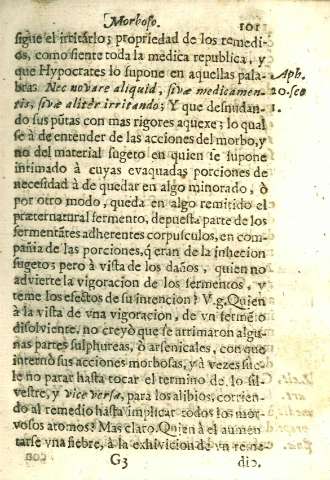 Morboso. 101
sigue el irritarlo; propriedad de los remedi-
os, como siente toda la medica republica, y
que Hypocrates lo supone en aquellas pala- Aph.
bras Nec novare aliquid, sivæ medicamen- 20. sec
tis, sivæ aliter irritando; Y que desnudan- 1.
do sus pũtas con mas rigores aquexe; lo qual
se à de entender de las acciones del morbo, y
no del material sugeto en quien se supone
intimado à cuyas evaquadas porciones de
necesidad à de quedar en algo minorado, ò
por otro modo, queda en algo remitido el
præternatural fermento, depuesta parte de los
fermentãtes adherentes corpusculos, en com-
pañia de las porciones, q̃ eran de la inhecion
sugeto; pero à vista de los daños, quien no
advierte la vigoracion de los fermentos, y
teme los efectos de su intencion? V.g. Quien
à la vista de vna vigoracion, de vn fermẽto
disolviente, no creyò que se arrimaron algu-
ñas partes sulphureas, ò arsenicales, con que
internò sus acciones morbosas, y à vezes sue-
le no parar hasta tocar el termino de lo sil-
vestre, y vice versa, para los alibios, corrien-
do al remedio hasta implicar todos los mor-
vosos atomos? Mas claro. Quien à el aumen
tarse vna fiebre, à la exhivicion de vn reme-
G3 dio.